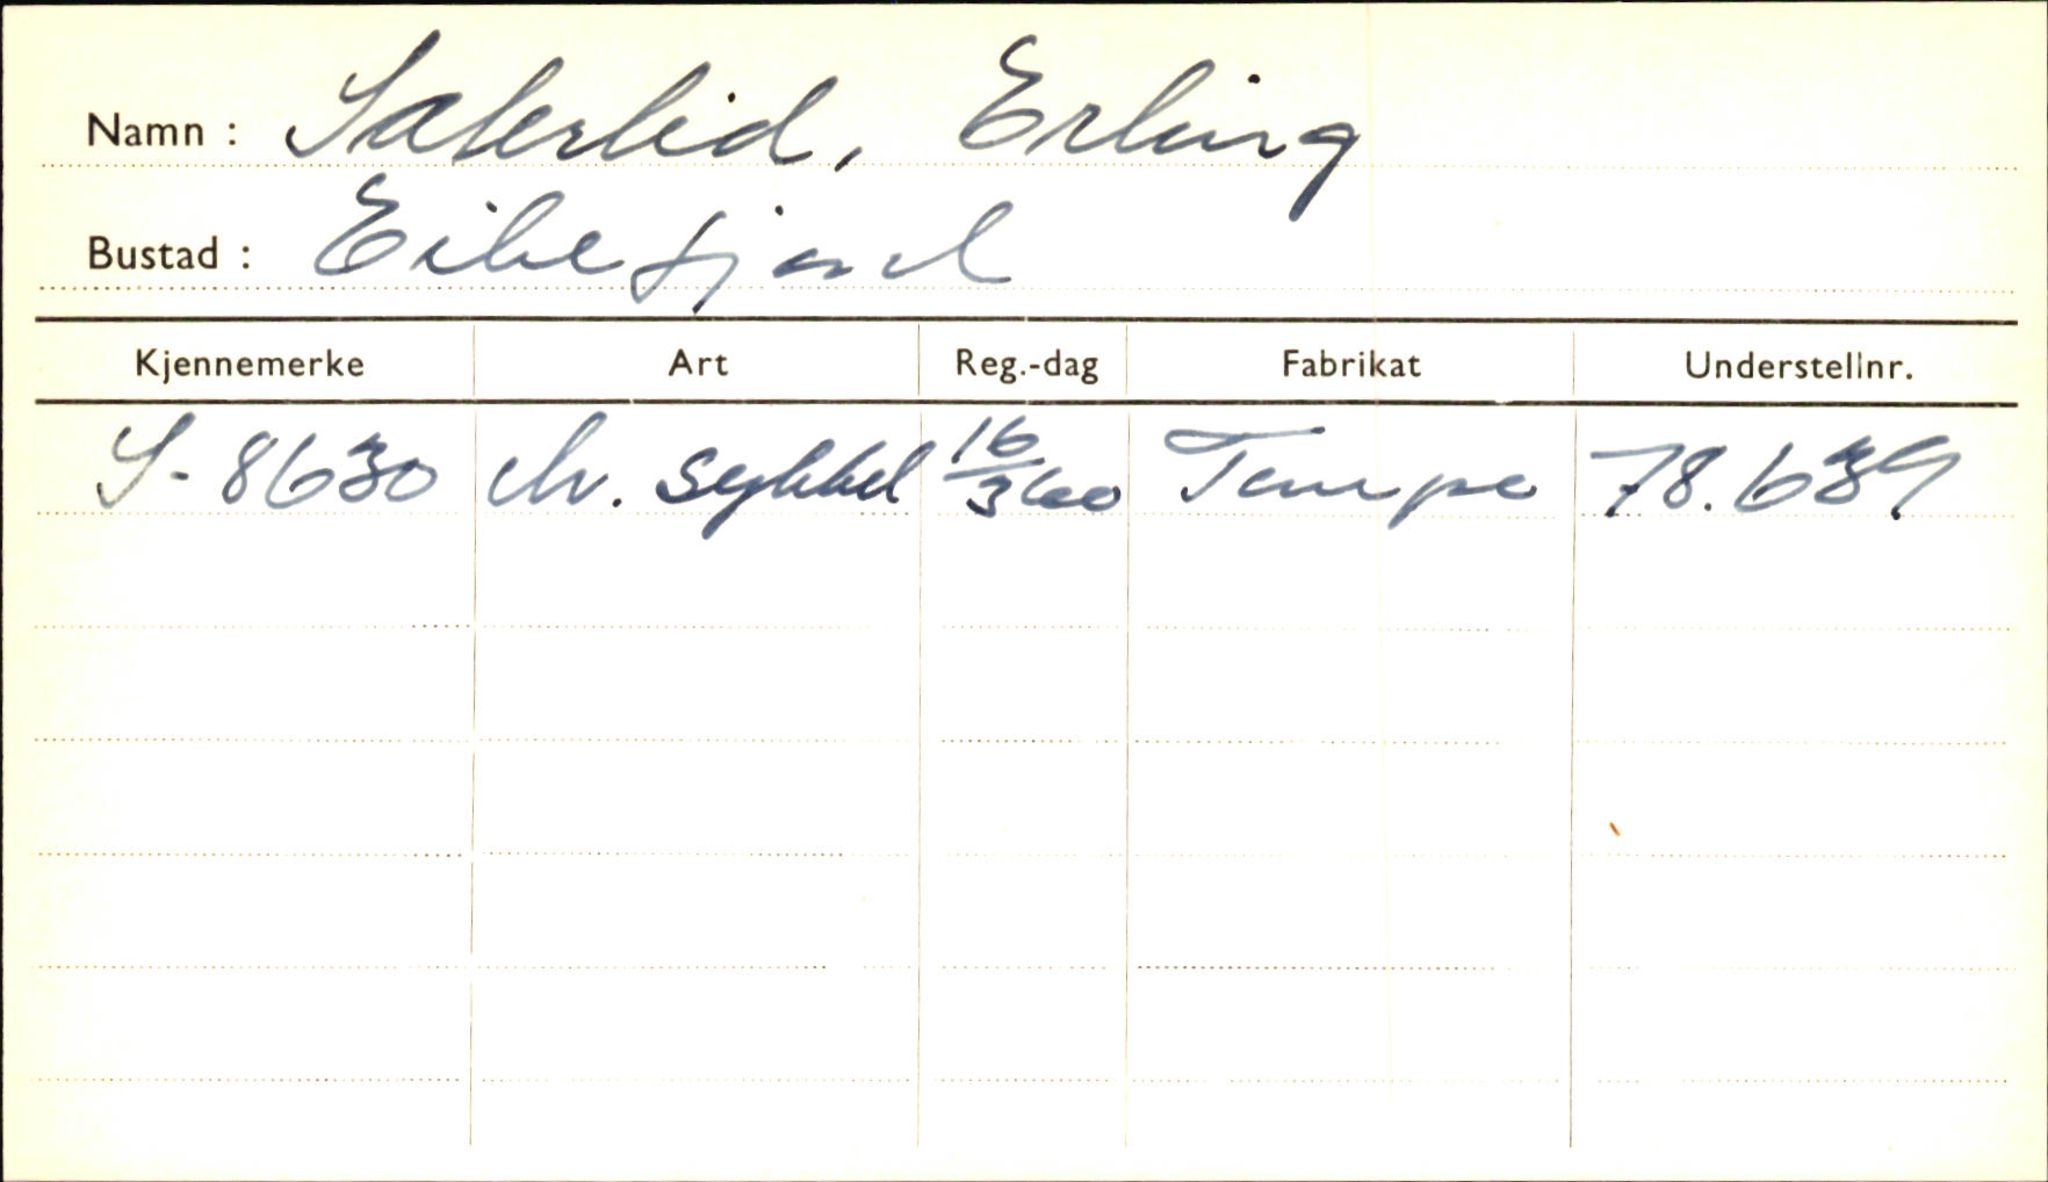 Namn : Sæterlid, Erling
Bustad : Eikefjord
Kjennemerke Art Reg.-dag Fabrikat Understellnr.
S-8630 M. sykkel 16/3 60 Tempo 78.639